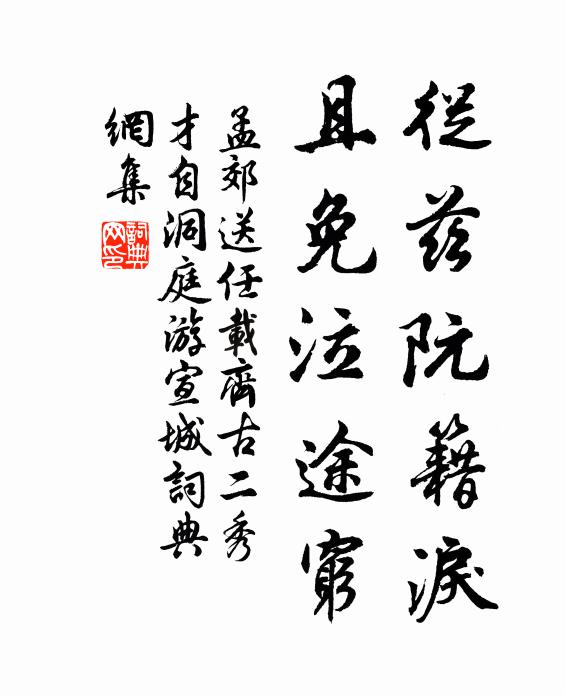 從兹阮籍淚
且免泣途窮
孟郊送任載齊古二秀
才自洞庭游宣城詞典
網集
詞典
网印